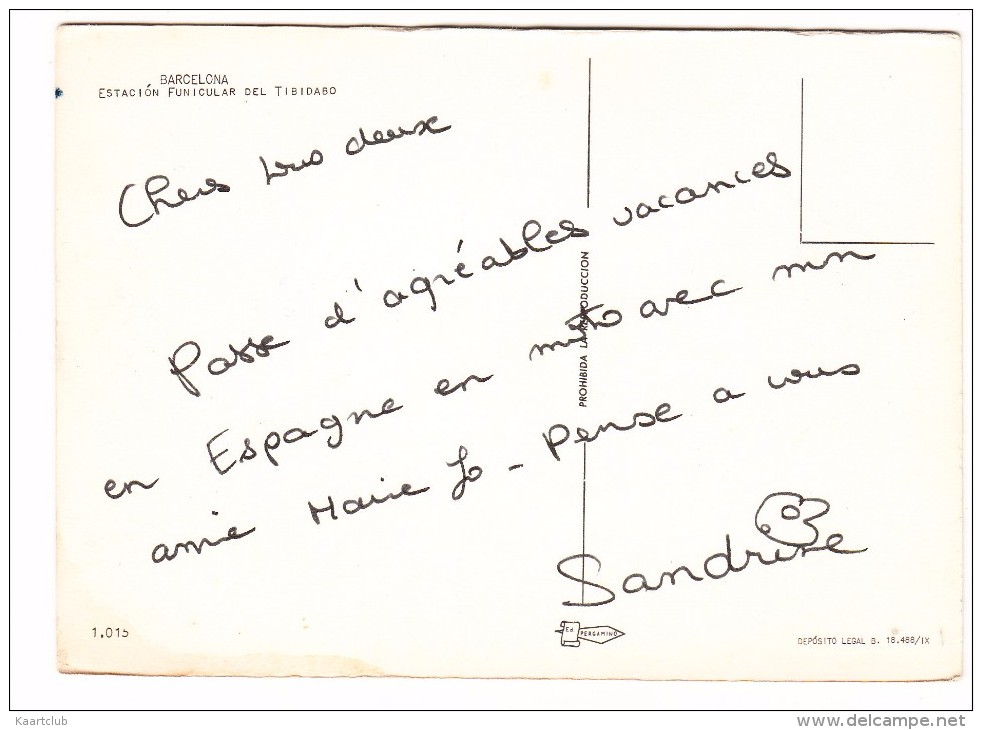 BARCELONA
ESTACIÓN FUNICULAR DEL TIBIDABO
Chers vous deux
Passe d'agréables vacances
en Espagne en moto avec mon
amie Marie Jo - Pense a vous
Sandrine
PROHIBIDA LA REPRODUCCION
1.015
Ed. PERGAMINO
DEPÓSITO LEGAL B. 18.488/IX
Kaartclub
www.delcampe.net